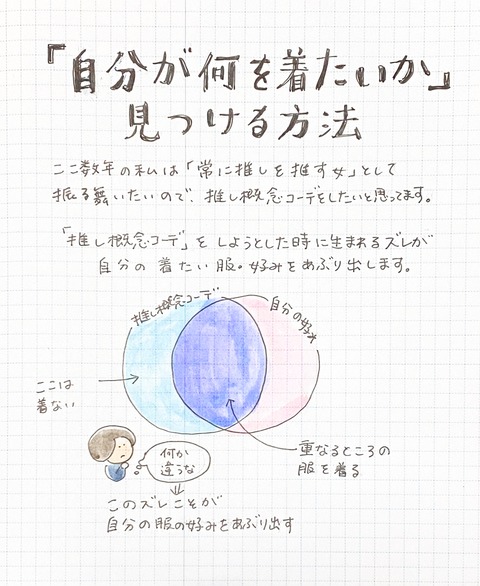 『自分が何を着たいか』
見つける方法
ここ数年の私は「常に推しを推す女」として
振る舞いたいので、推し概念コーデをしたいと思ってます。
「推し概念コーデ」をしようとした時に生まれるズレが
自分の着たい服・好みをあぶり出します。
推し概念コーデ
自分の好み
ここは
着ない
何か
違うな
重なるところの
服を着る
このズレこそが
自分の服の好みをあぶり出す